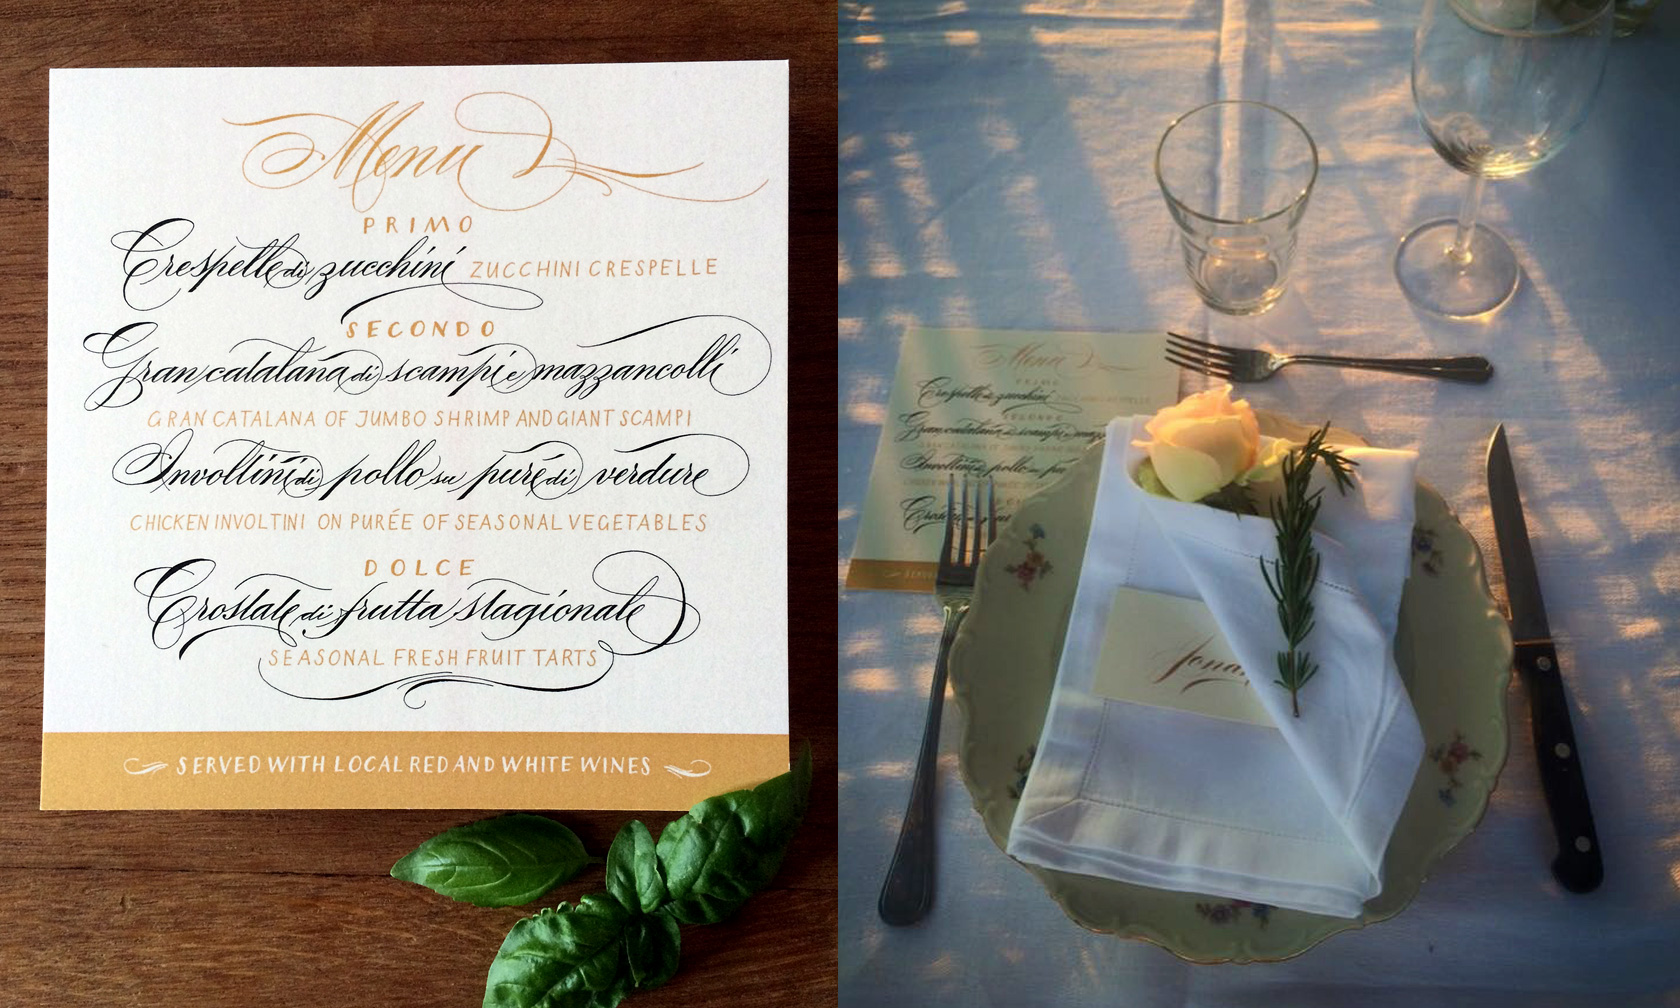 Menu
PRIMO
Crespelle di zucchini ZUCCHINI CRESPELLE
SECONDO
Gran catalana di scampi e mazzancolli
GRAN CATALANA OF JUMBO SHRIMP AND GIANT SCAMPI
Involtini di pollo su puré di verdure
CHICKEN INVOLTINI ON PURÉE OF SEASONAL VEGETABLES
DOLCE
Crostate di frutta stagionale
SEASONAL FRESH FRUIT TARTS
SERVED WITH LOCAL RED AND WHITE WINES
Menu
PRIMO
Crespelle di zucchini
SECONDO
Gran catalana di scampi e mazz
Involtini di pollo su pu
SERVED